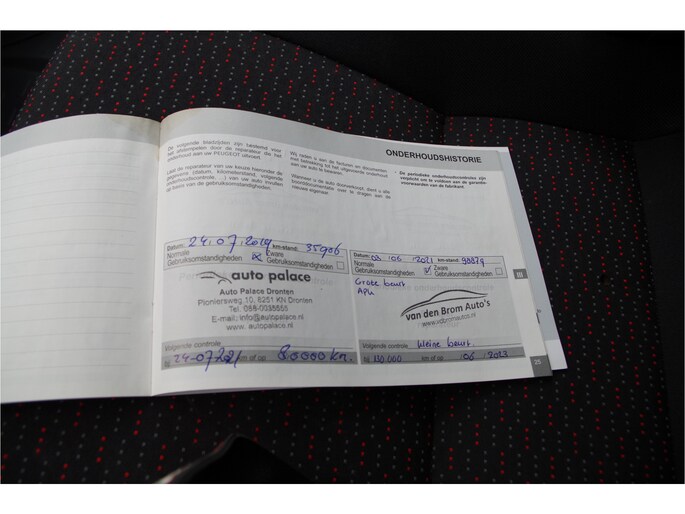 ONDERHOUDSHISTORIE
De volgende bladzijden zijn bestemd voor
het afstempelen door de reparateur die het
onderhoud aan uw PEUGEOT uitvoert.
Laat de reparateur van uw keuze hieronder de
gegevens (datum, kilometerstand, volgende
onderhoudscontrole, ...) van uw auto invullen
op basis van de gebruiksomstandigheden.
Wij raden u aan de facturen en documenten
met betrekking tot het uitgevoerde onderhoud
aan uw auto te bewaren.
Wanneer u de auto doorverkoopt, dient u alle
boorddocumentatie over te dragen aan de
nieuwe eigenaar.
De periodieke onderhoudscontroles zijn
verplicht om te voldoen aan de garantie-
voorwaarden van de fabrikant.
Datum: 24.07.2019 km-stand: 35906
Normale Zware
Gebruiksomstandigheden Gebruiksomstandigheden
auto palace
Auto Palace Dronten
Pioniersweg 10, 8251 KN Dronten
Tel. 088-0035555
E-mail: info@autopalace.nl
www.autopalace.nl
Volgende controle
24-07-2021 km of op 80000 km.
Datum: 03 '06 2021 km-stand: 98879
Normale Zware
Gebruiksomstandigheden Gebruiksomstandigheden
Grote beurt
APK
van den Brom Auto's
www.vdbromautos.nl
Volgende controle kleine beurt
130.000 km of op 06 2023
III
25